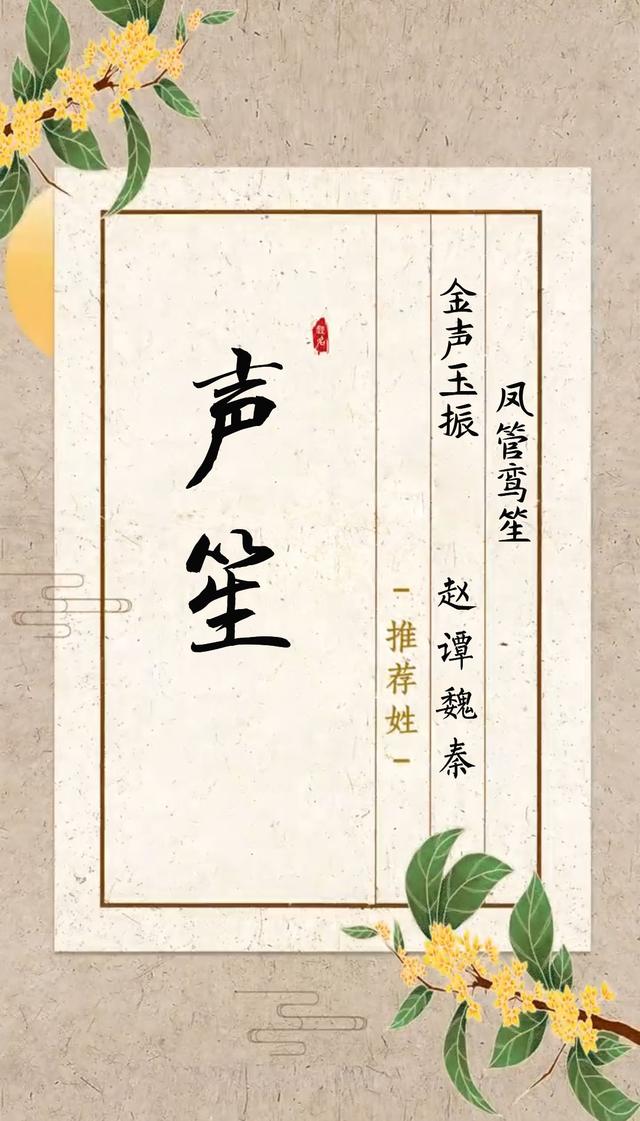 凤管鸾笙
金声玉振
赵谭魏秦
-推荐姓-
声笙